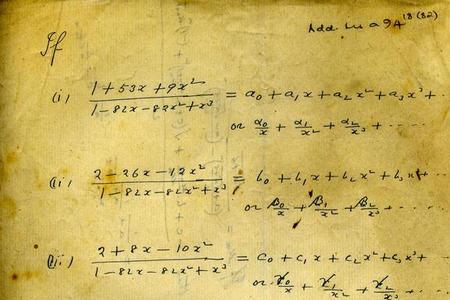 Add Ms a 94 18 (82)
If
(i) (1 + 53x + 9x²)/(1 - 82x - 82x² + x³) = a₀ + a₁x + a₂x² + a₃x³ + ·
or α₀/x + α₁/x² + α₂/x³ + · · · ·
(ii) (2 - 26x - 12x²)/(1 - 82x - 82x² + x³) = b₀ + b₁x + b₂x² + b₃x³ + ·
or β₀/x + β₁/x² + β₂/x³ + · · · ·
(iii) (2 + 8x - 10x²)/(1 - 82x - 82x² + x³) = c₀ + c₁x + c₂x² + c₃x³ + ·
or γ₀/x + γ₁/x² + γ₂/x³ + · · ·